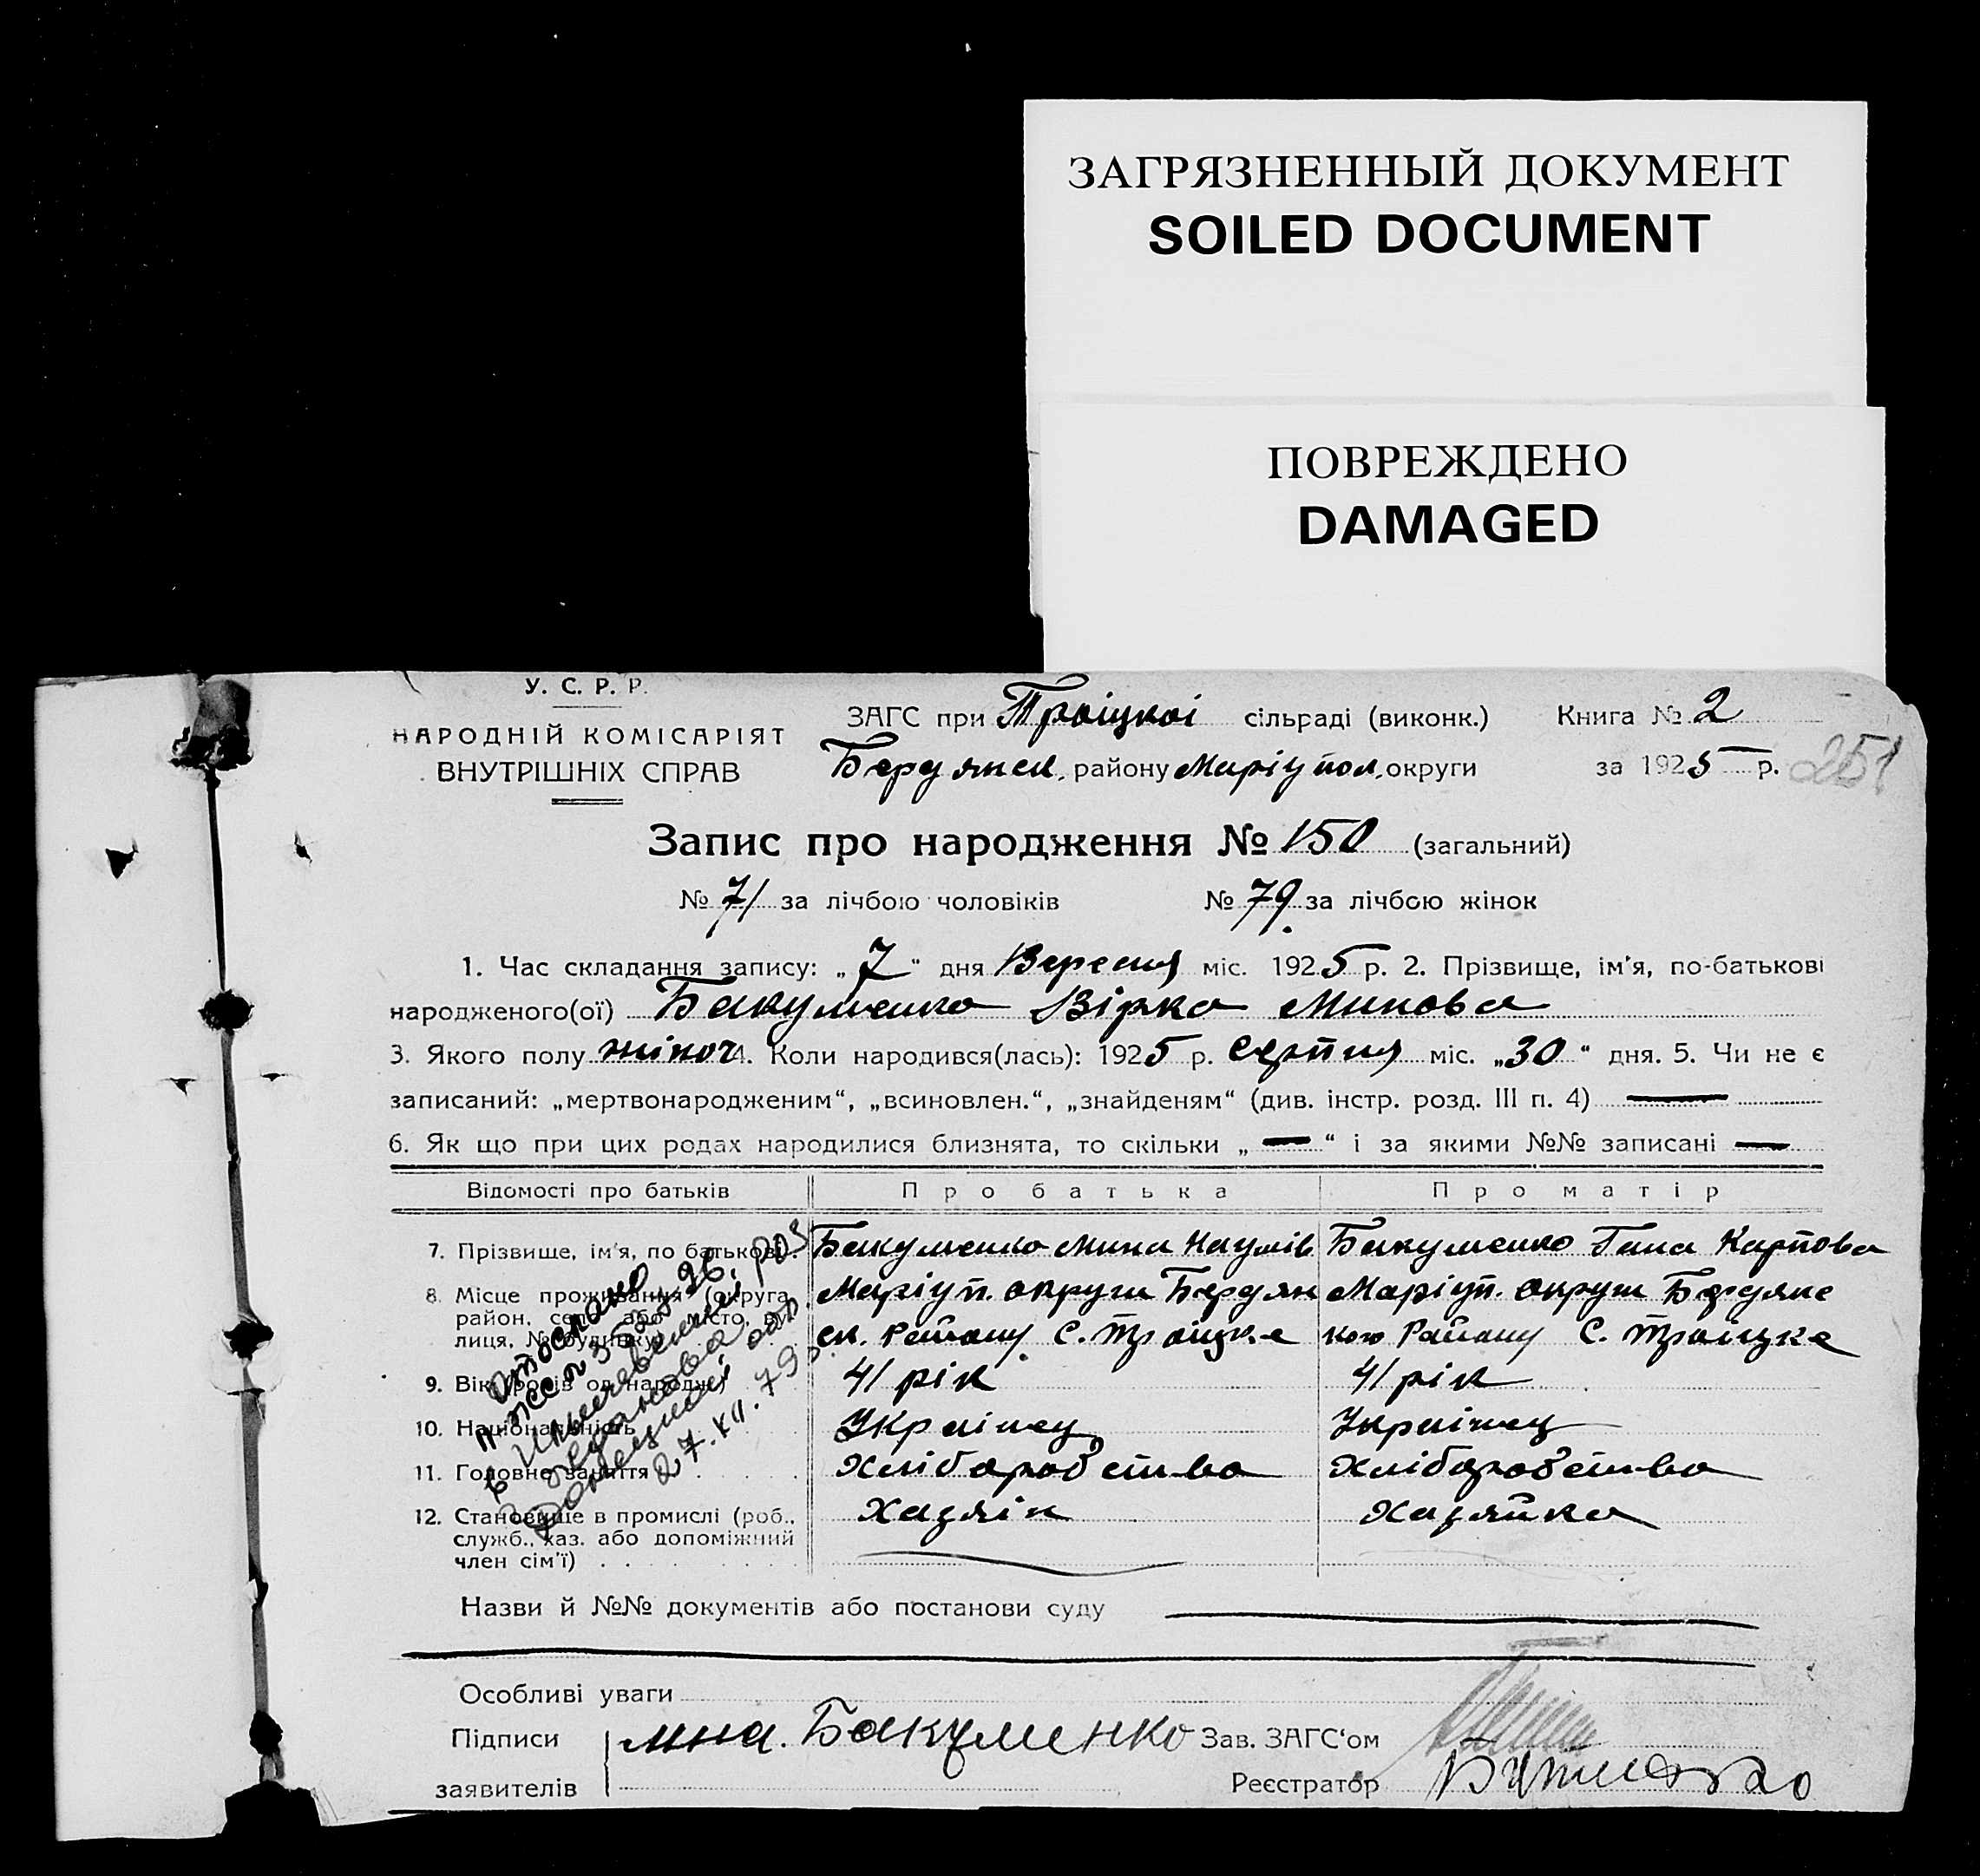 ЗАГРЯЗНЕННЫЙ ДОКУМЕНТ
SOILED DOCUMENT
ПОВРЕЖДЕНО
DAMAGED
У. С. Р. Р.
НАРОДНІЙ КОМІСАРІЯТ
ВНУТРІШНІХ СПРАВ
ЗАГС при Троіцкої сільраді (виконк.) Книга № 2
Бердянск. району Маріупол. округи за 1925 р.
251
Запис про народження № 150 (загальний)
№ 71 за лічбою чоловіків № 79 за лічбою жінок
1. Час складання запису: „7“ дня Вересня міс. 1925 р. 2. Прізвище, ім'я, по-батькові
народженого(ої) Бакуменко Вірка Минова
3. Якого полу жіноч 4. Коли народився(лась): 1925 р. Серпня міс. „30“ дня. 5. Чи не є
записаний: „мертвонародженим“, „всиновлен.“, „знайденям“ (див. інстр. розд. III п. 4) —
6. Як що при цих родах народилися близнята, то скільки „—“ і за якими №№ записані —
Відомості про батьків Про батька Про матір
7. Прізвище, ім'я, по батькові. Бакуменко Мина Наумів Бакуменко Гана Карпова
8. Місце проживання (округа, Маріуп. округи Бердян Маріуп. округи Бердянс
район, село, або місто, ву- ск. Району С. Троіцке кого Району С. Троіцке
лиця, № будинку)
9. Вік (років од народж.) 41 рік 41 рік
10. Національність Украінец Украінец
11. Головне заняття Хліборобство Хліборобство
12. Становище в промислі (роб., Хазяін Хазяйка
служб., хаз. або допоміжний
член сім'ї)
27.XII.79
Назви й №№ документів або постанови суду
Особливі уваги
Підписи мина. Бакуменко Зав. ЗАГС'ом
заявителів Реєстратор